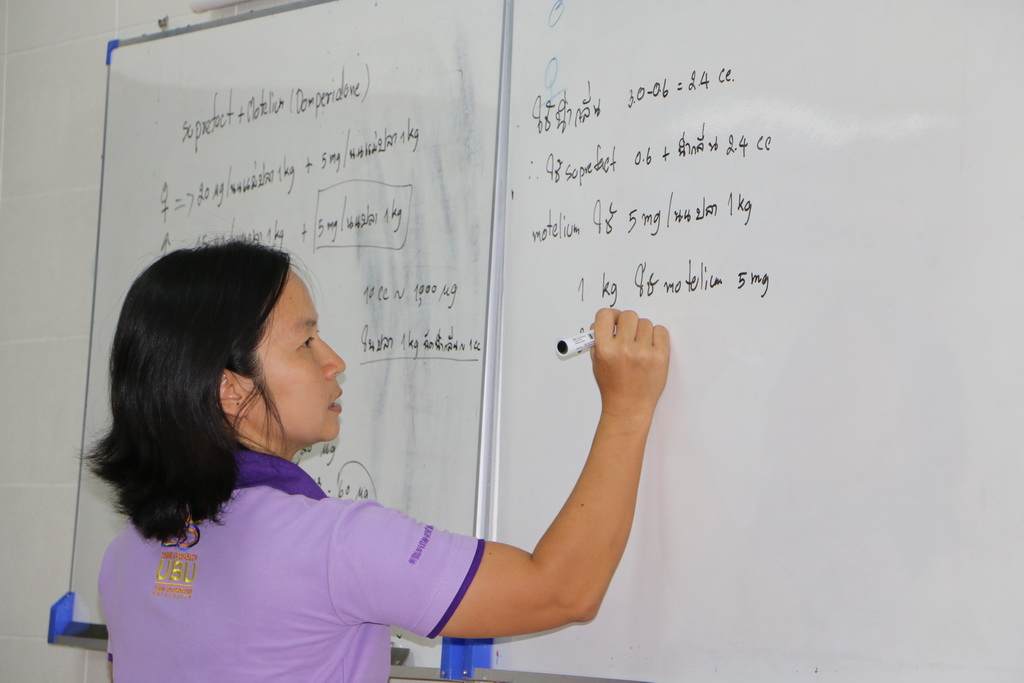 suprefact + Motelium (Domperidone)
♀ => 20 µg/นนแม่ปลา 1 kg + 5 mg/นนแม่ปลา 1 kg
1 kg + 5 mg/นนปลา 1 kg
10 cc ~ 1,000 µg
ในปลา 1 kg ฉีดน้ำกลั่น ~ 1 cc
µg
60 µg
ใช้น้ำกลั่น 3.0-0.6 = 2.4 cc.
∴ ใช้ suprefact 0.6 + น้ำกลั่น 2.4 cc
motelium ใช้ 5 mg/นนปลา 1 kg
1 kg ใช้ motelium 5 mg
UBU